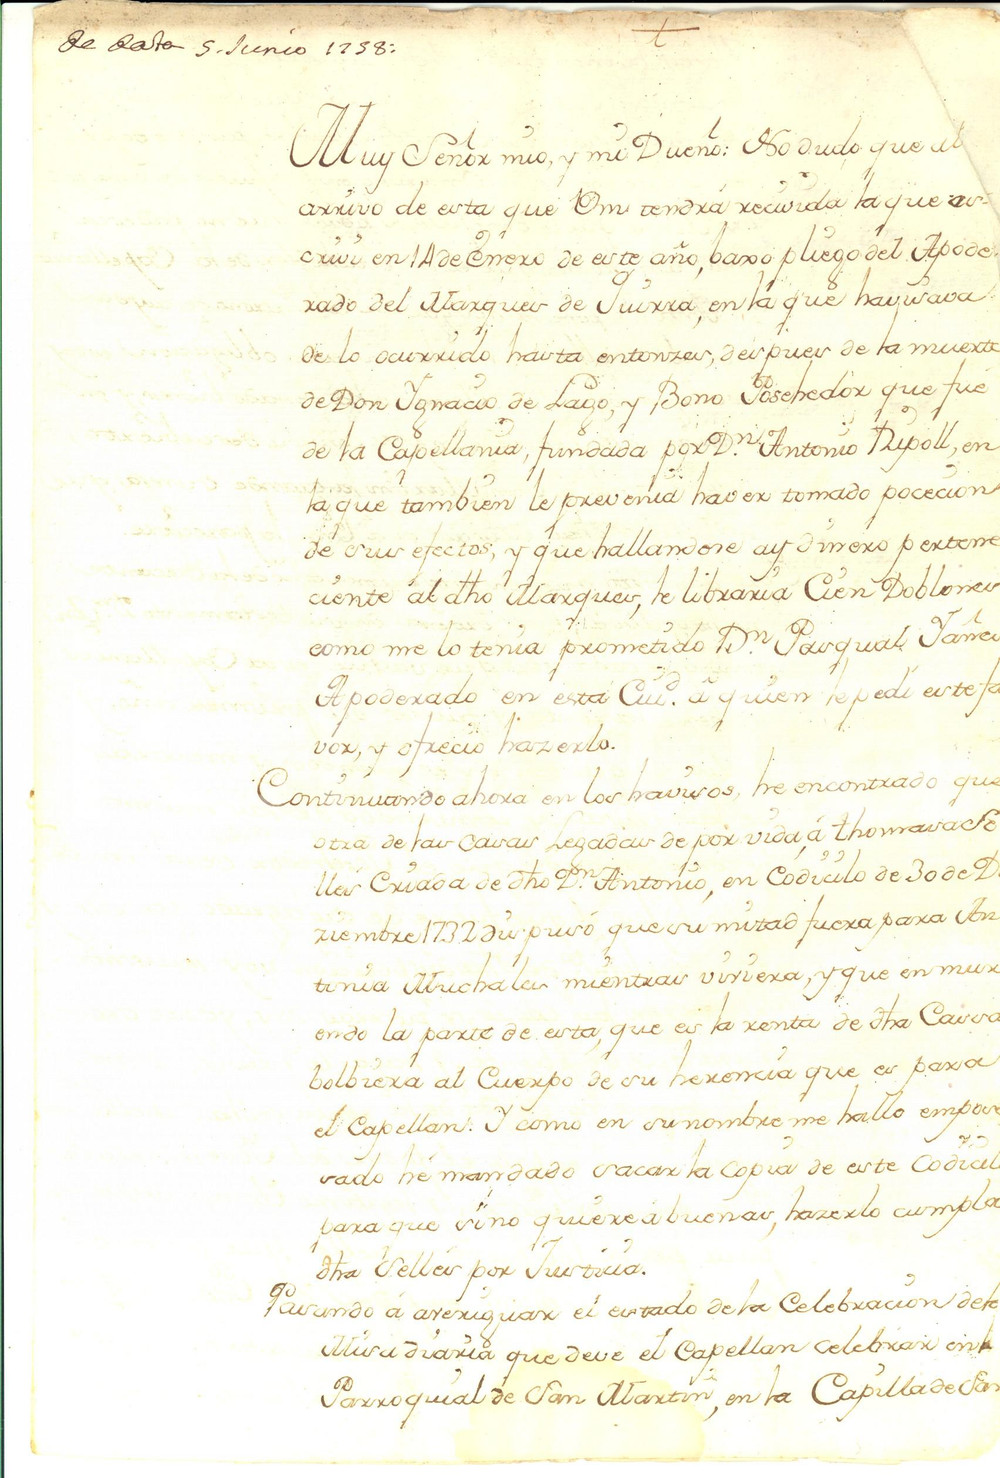 De data 5. Junio 1738:
Muy Señor mio, y mi Dueño: No dudo que al
arrivo de esta que Vm tendrá recivida la que es-
crivi en 14 de Enero de este año, baxo pliego del Apode-
rado del Marques de Guirra, en la que havisava
de lo ocurrido hasta entonzes, despues de la muerte
de Don Ygnacio de Lago, y Bono Posehedor que fué
de la Capellania, fundada por Dn. Antonio Ripoll, en
la que tambien le prevenia haver tomado pocecion
de sus efectos, y que hallandose ay dinero pertene
ciente al dho Marques, le libraria Cien Doblones
como me lo tenia prometido Dn. Pasqual Yañes
Apoderado en esta Ciud. á quien le pedi este fa
vor, y ofreció hazerlo.
Continuando ahora en los havisos, he encontrado que
otra de las casas Legadas de por vida, á thomasa Se
lles Criada de dho Dn. Antonio, en Codicilo de 30 de D
ziembre 1732 dispusó que su mitad fuera para An
tonia Muchales mientras viviera, y que en muri
endo la parte de esta, que es la renta de dha Cassa
bolbiera al Cuerpo de su herencia que es para
el Capellan. Y como en su nombre me hallo empose
sado hé mandado sacar la copia de este Codicil
para que sino quiere á buenas, hazerlo cumpla
dha Selles por Justicia.
Pasando á averiguar el estado de la Celebracion de la
Misa diaria que deve el Capellan celebrar en l
Parroquial de San Martin, en la Capilla de San